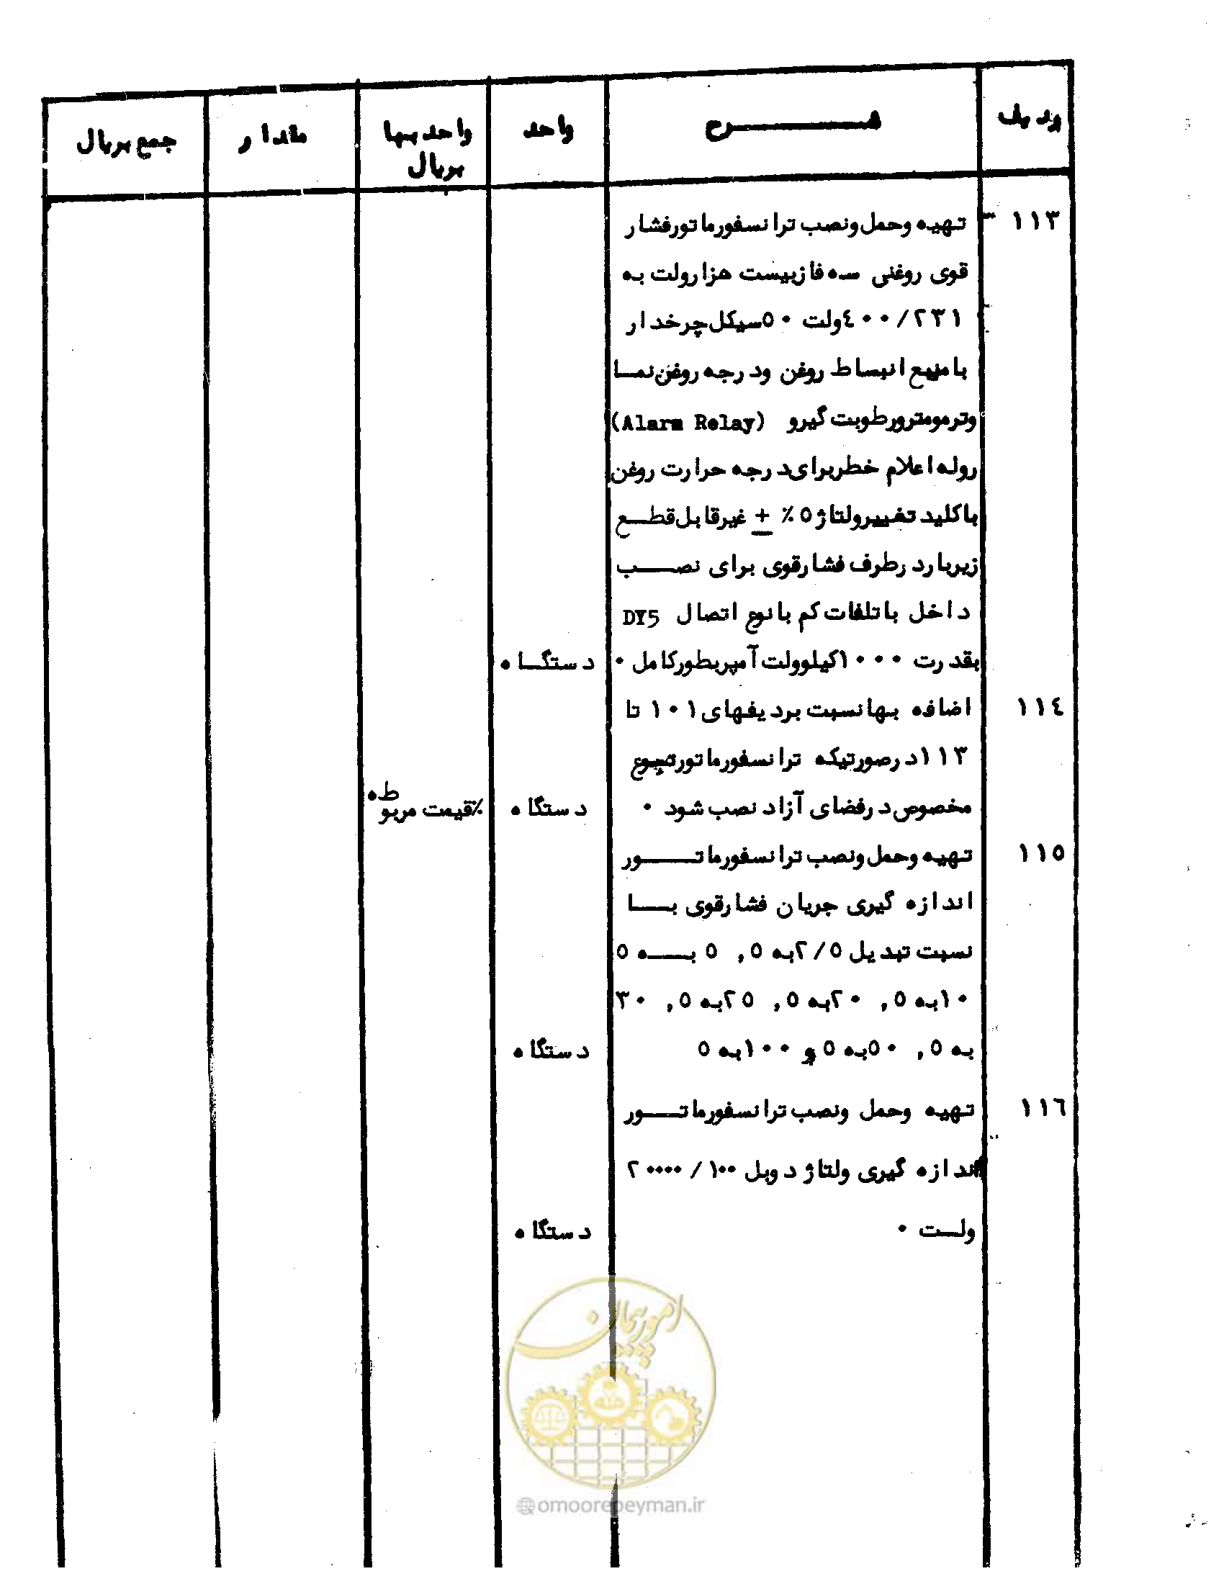 ردیف شرح واحد واحد بها بریال مقدار جمع بریال
۱۱۳ تهیه وحمل ونصب ترانسفورماتورفشار
قوی روغنی سه فازبیست هزارولت به
۴۰۰/۲۳۱ولت ۵۰سیکل چرخدار
بامنبع انبساط روغن ودرجه روغن نما
وترمومترورطوبت گیرو (Alarm Relay)
روله اعلام خطربرای درجه حرارت روغن
باکلید تغییرولتاژ ۵٪ ± غیرقابل قطع
زیربار درطرف فشارقوی برای نصب
داخل باتلفات کم بانوع اتصال DY5
بقدرت ۱۰۰۰کیلوولت آمپربطورکامل . دستگاه
۱۱۴ اضافه بهانسبت بردیفهای ۱۰۱ تا
۱۱۳درصورتیکه ترانسفورماتورتنوع
مخصوص درفضای آزاد نصب شود . دستگاه ٪قیمت مربوطه
۱۱۵ تهیه وحمل ونصب ترانسفورماتور
اندازه گیری جریان فشارقوی با
نسبت تبدیل ۲/۵به ۵, ۵ به ۵
۱۰به ۵, ۲۰به ۵, ۲۵به ۵, ۳۰
به ۵, ۵۰به ۵ و ۱۰۰به ۵ دستگاه
۱۱۶ تهیه وحمل ونصب ترانسفورماتور
اندازه گیری ولتاژ دوبل ۱۰۰ / ۲۰۰۰۰
ولت . دستگاه
امور پیمان
omoorepeyman.ir